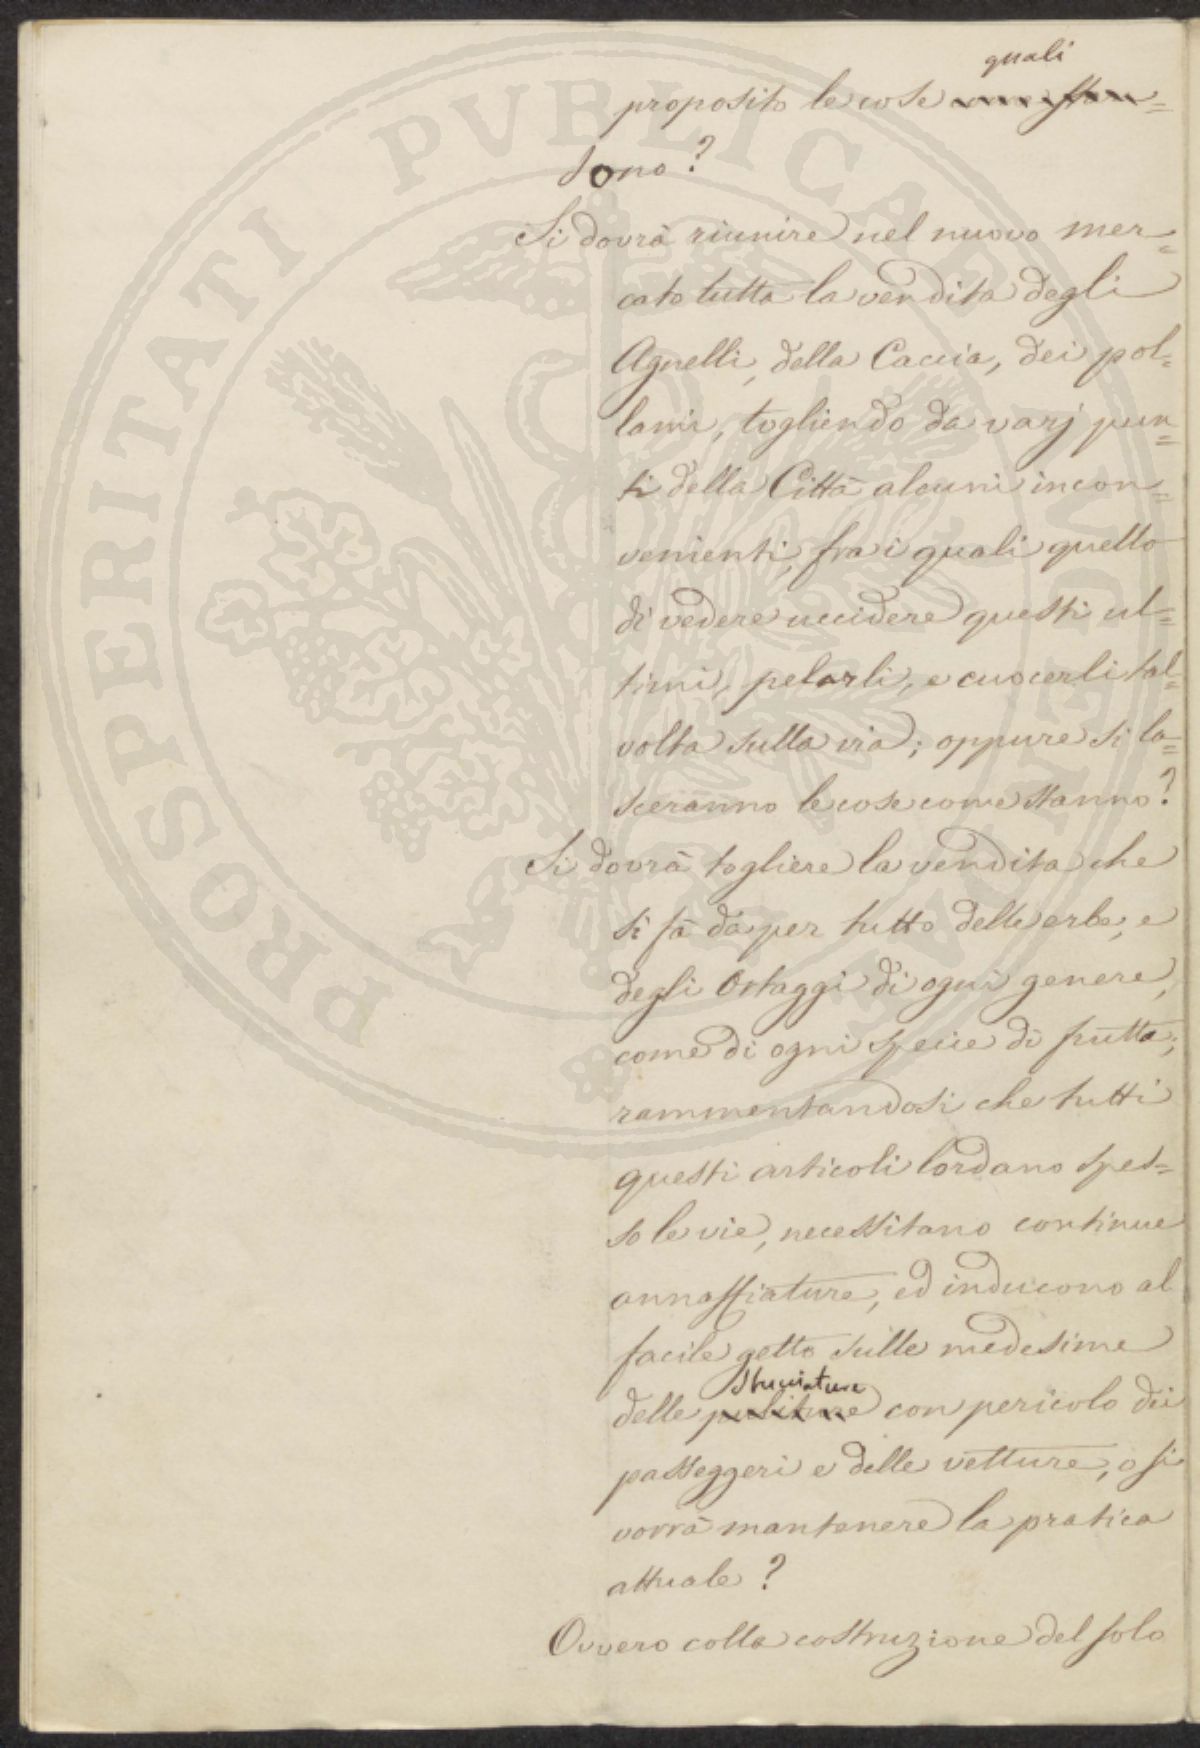 quali
proposito le cose come stan=
sono?
Si dovrà riunire nel nuovo mer=
cato tutta la vendita degli
Agnelli, della Caccia, dei pol=
lami, togliendo da varj pun=
ti della Città alcuni incon=
venienti, fra i quali quello
di vedere uccidere questi ul=
timi, pelarli, e cuocerli tal=
volta sulla via; oppure si la=
sceranno le cose come stanno?
Si dovrà togliere la vendita che
si fà da per tutto delle erbe, e
degli Ortaggi di ogni genere,
come di ogni specie di frutta;
rammentandosi che tutti
questi articoli lordano spes=
so le vie, necessitano continue
annaffiature, ed inducono al
facile getto sulle medesime
stucciature
delle puliture con pericolo dei
passeggeri e delle vetture, o si
vorrà mantenere la pratica
attuale?
Ovvero colla costruzione del solo
PROSPERITATI PVBLICAE AVGENDAE